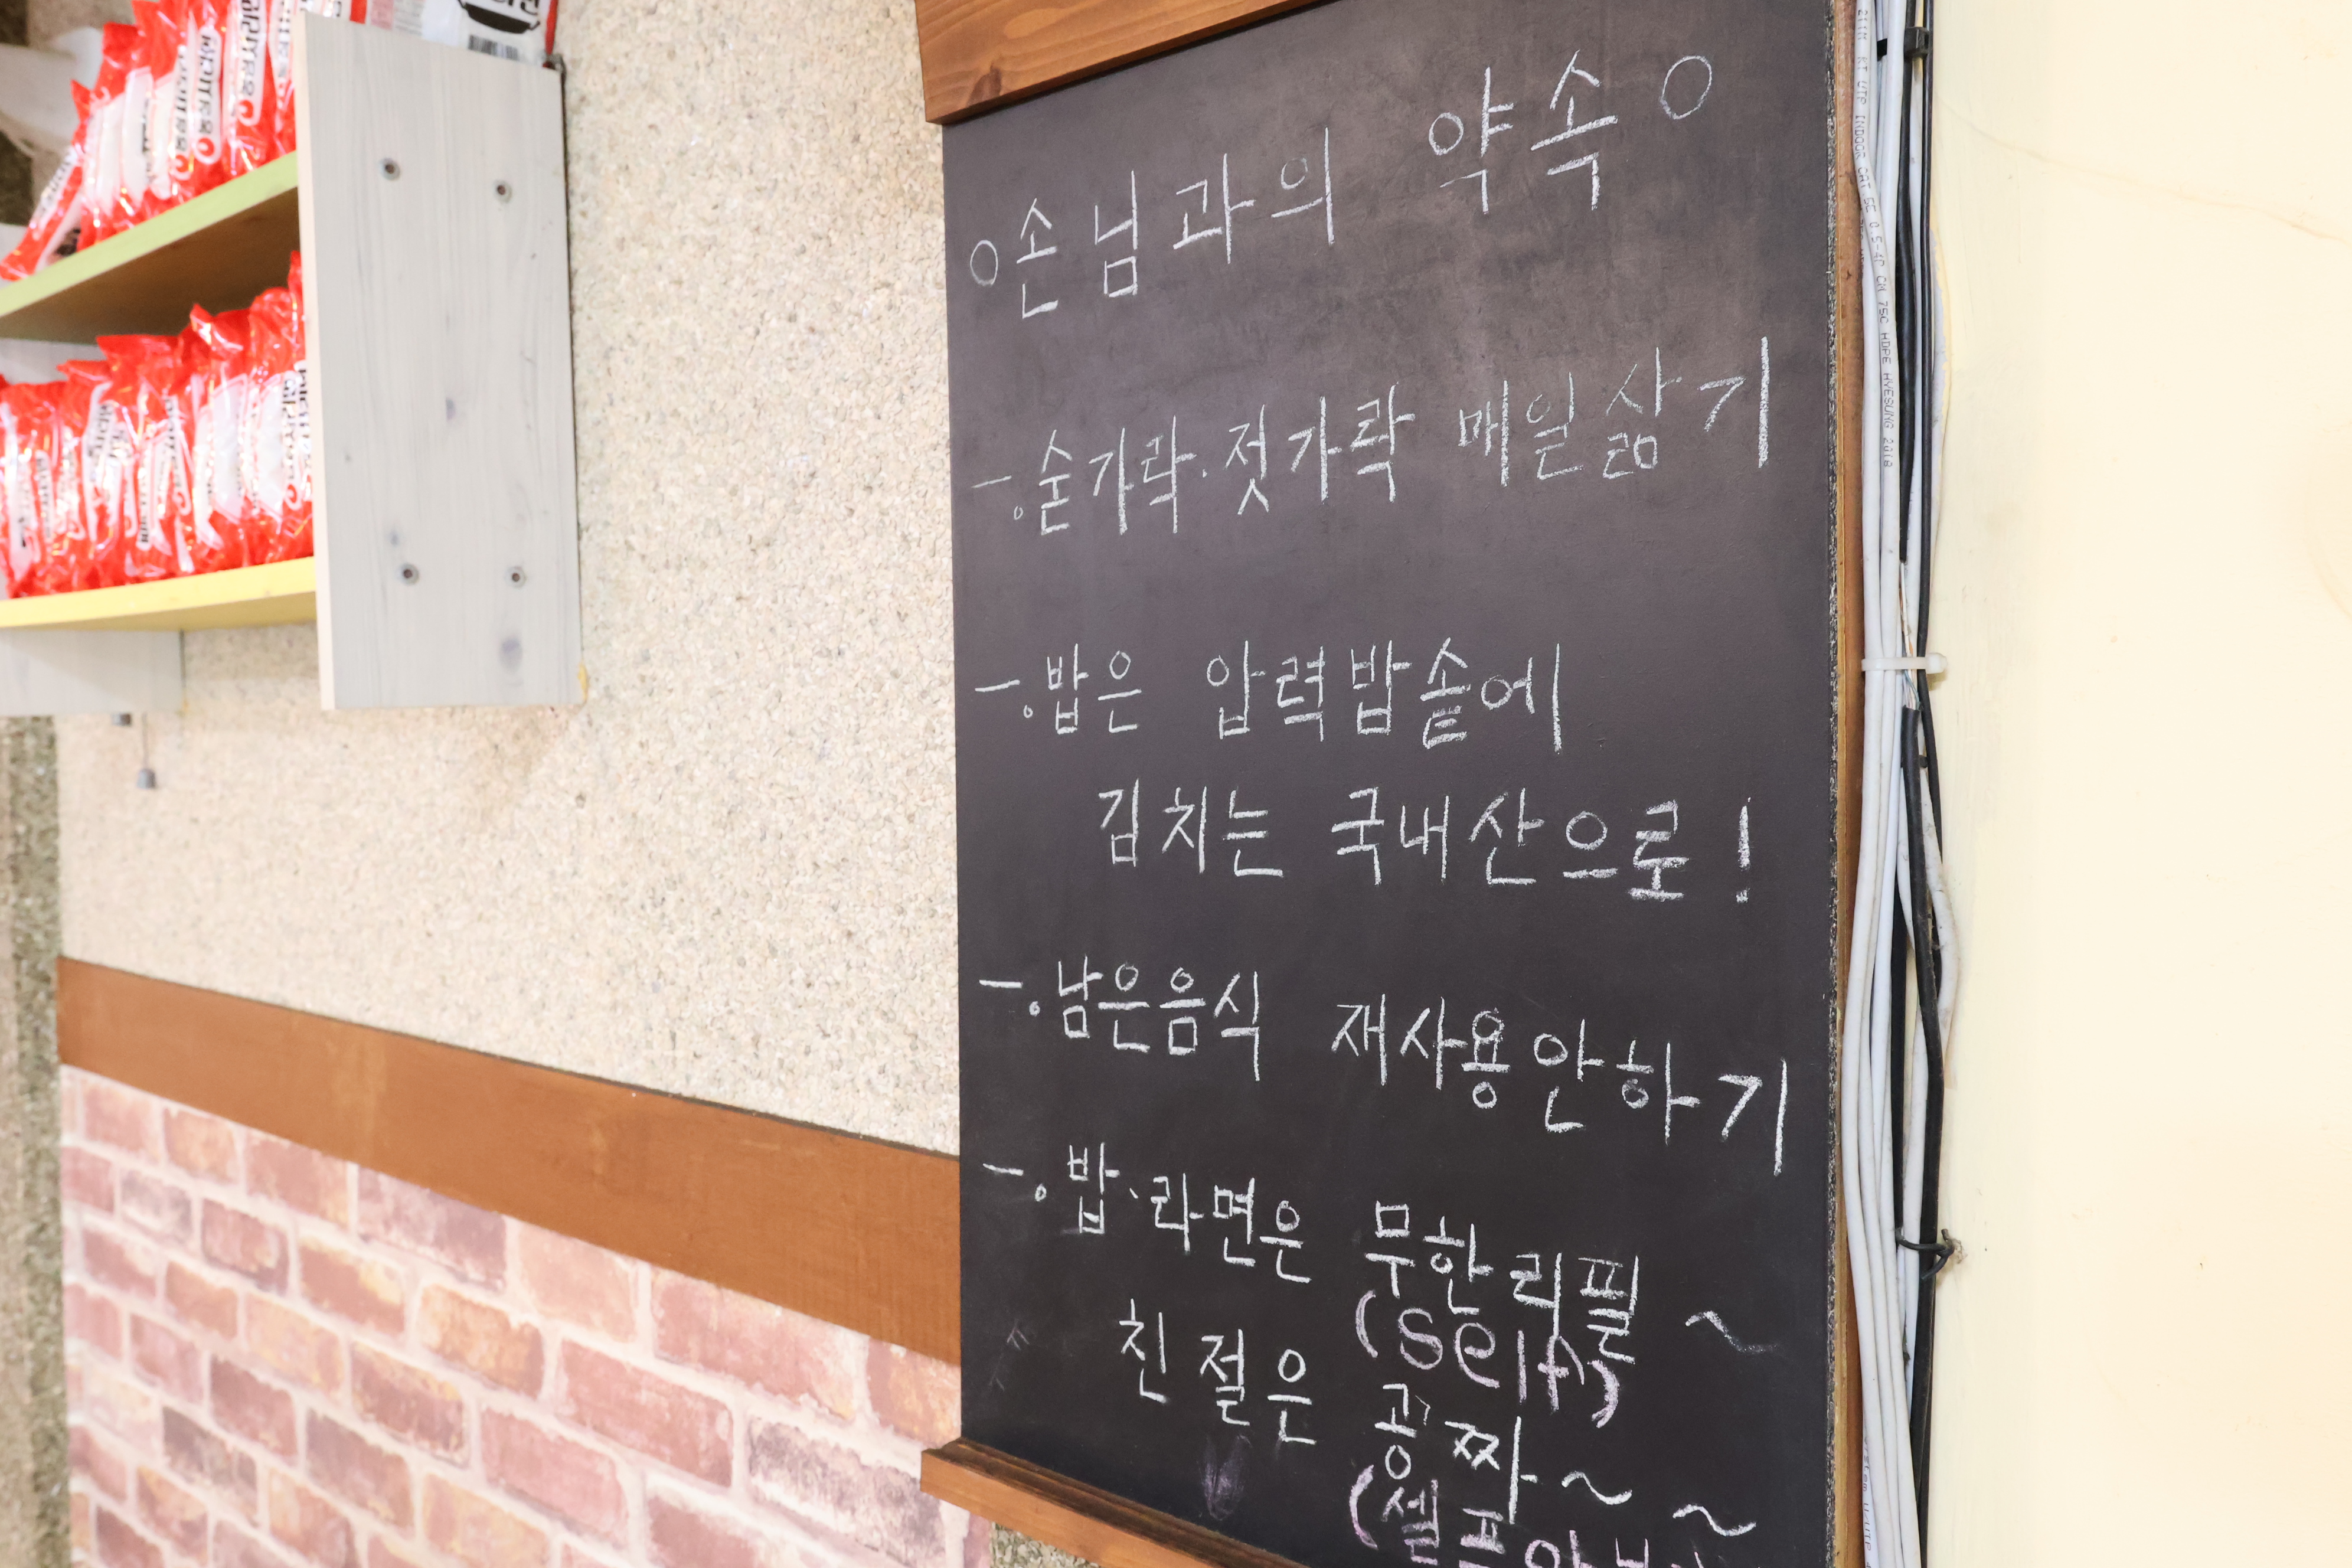 ○손님과의 약속○
-。숟가락·젓가락 매일삶기
-。밥은 압력밥솥에
김치는 국내산으로!
-。남은음식 재사용안하기
-。밥·라면은 무한리필~
(self)
친절은 공짜~~
(셀프
2UTM KT UTP INDOOR CAT.5E 0.5-4P CM 75C HDPE HYESUNG 2018